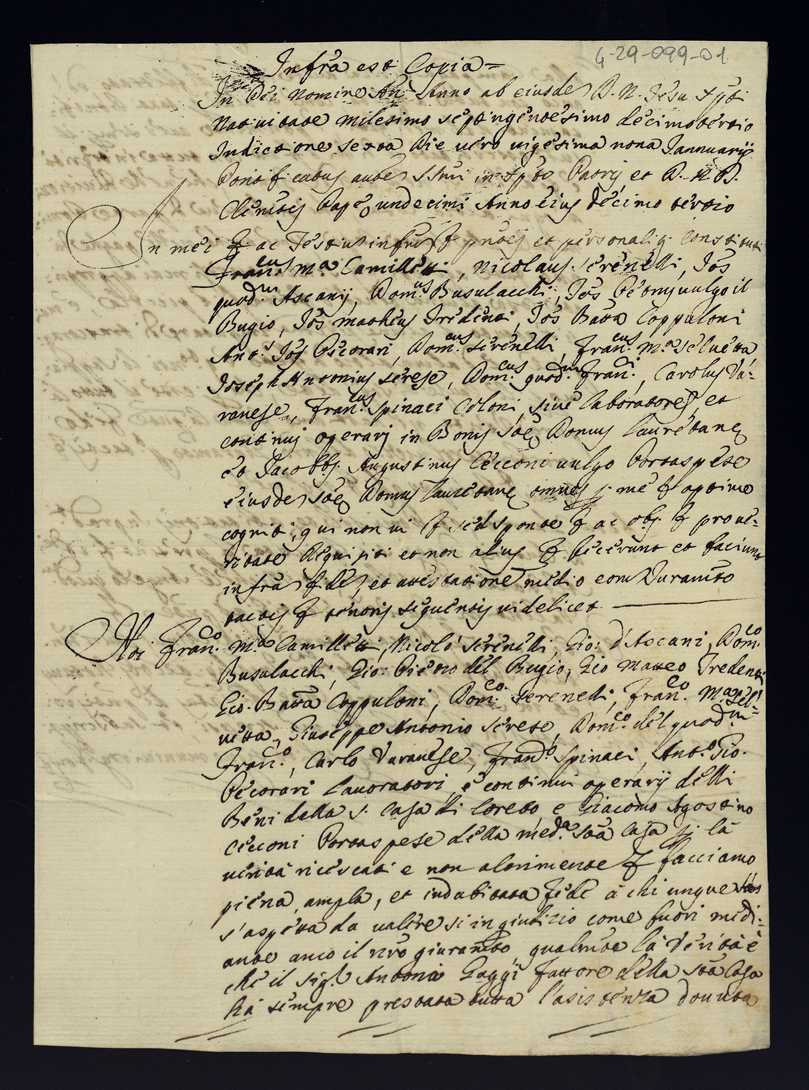 4-29-099-01
Infrã est Copia =
In Dei nomine Anno ab eiusdẽ D. N. Jesu Xpti
Nativitate milesimo septingentesimo decimotertio
Indictione sexta Die vero vigesima nona Jannuarij
Pontificatus autẽ SSmi in Xpto Patris et D. N. D.
Clemẽtis Papẹ undecimi Anno eius decimo tertio
In mei & ac Testiũ infrũ & pñtes et personaliter constituti
Franc.us M.a Camilletti, Nicolaus Serenelli, Jos
quod.m Ascanij, Dom.us Busulacchi, Jos Petrus vulgo il
Bugio, Jos Matheus Tredenti, Jos Batta Coppuloni
Ant.s Jos Pecorari, Dom.cus Serenelli, Fran.cus M.a Selvetta
Joseph Antonius Serese, Dom.cus quod.m Fran.ci, Carolus Va-
ranese, Fran.cus Spinaci Coloni, sive laboratores, et
continui operarij in Bonis Sãe Domus Lauretane
et Jacobus Augustinus Cecconi vulgo Portaspese
eiusdẽ Sãe Domus Lauretane omnes meo & optime
cogniti, qui non vi & sed sponte & ac obs & pro ve-
ritate Requisiti et non alius & fecerunt et faciunt
infrãm fidẽ, et attestationẽ medio eorum Juramto
tactis & tenoris sequentis videlicet
Noi Fran.co M.a Camilletti, Nicolò Serenelli, Gio: d'Ascani, Dom.co
Busulacchi, Gio: Pietro del Bugio, Gio Matteo Tredenti
Gio. Batta Coppuloni, Dom.co Serenelli, Fran.co M.a Sel-
vetta, Giuseppe Antonio Serese, Dom.co del quod.m
Fran.co, Carlo Varanese, Fran.co Spinaci, Ant.o Gio.
Pecorari lavoratori, e continui operarij delli
Beni della S. Casa di Loreto e Giacomo Agostino
Cecconi Portaspese della med.a Sãa Casa p la
verità ricercati e non altrimente & facciamo
piena, ampla, et indubitata fede à chi unque
s'aspetta da valersi in giudizio come fuori medi-
ante anco il nrõ giuramto qualmte la verità è
che il Sig.r Antonio Gaggij fattore della Sãa Casa
hà sempre prestata tutta l'asistenza dovuta